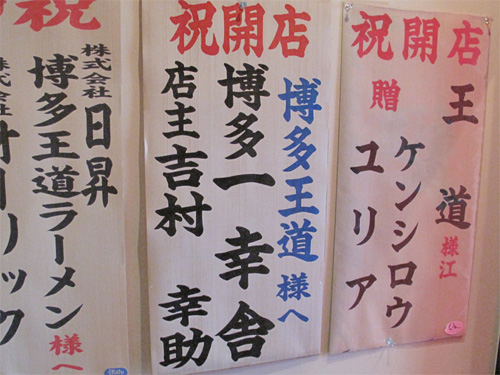 祝開店
王道様江
贈
ケンシロウ
ユリア
祝開店
博多王道様へ
博多一幸舎
店主吉村幸助
祝
博多王道ラーメン様へ
株式会社日昇
株式会社